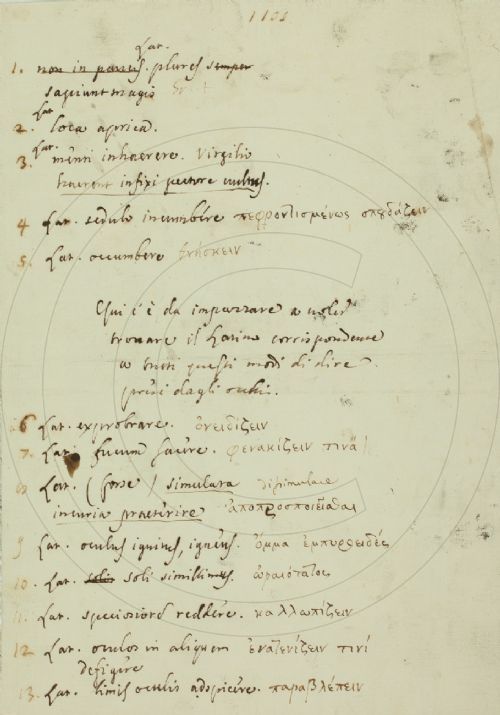 1155
Lat.
1. non in panris. plures semper
sapiunt magis
Lat.
2. loca aprica.
Lat.
3. menti inhaerere. Virgilio
haerent infixi pectore vultus.
4 Lat. sedulo incumbere πεφροντισμένως σπυδάζειν
5. Lat. occumbere θνήσκειν
Qui c'è da impazzare a voler
trovare il Latino corrispondente
a tutti questi modi di dire
presi dagli occhi.
6 Lat. exprobrare. ὀνειδίζειν
7. Lat. fucum facere. φενακίζειν τινά
8 Lat. (forse) simulata dissimulare
incuria praeterire ἀποπροσποιεῖσθαι
9 Lat. oculus igneus, igneus. ὄμμα ἐμπυροειδές
10. Lat. solis soli simillimus. ὡραιότατος
11. Lat. speciosiord reddere. καλλωπίζειν
12 Lat. oculos in aliquem ἐνατενίζειν τινί
defigere
13. Lat. limis oculis adspicere. παραβλέπειν